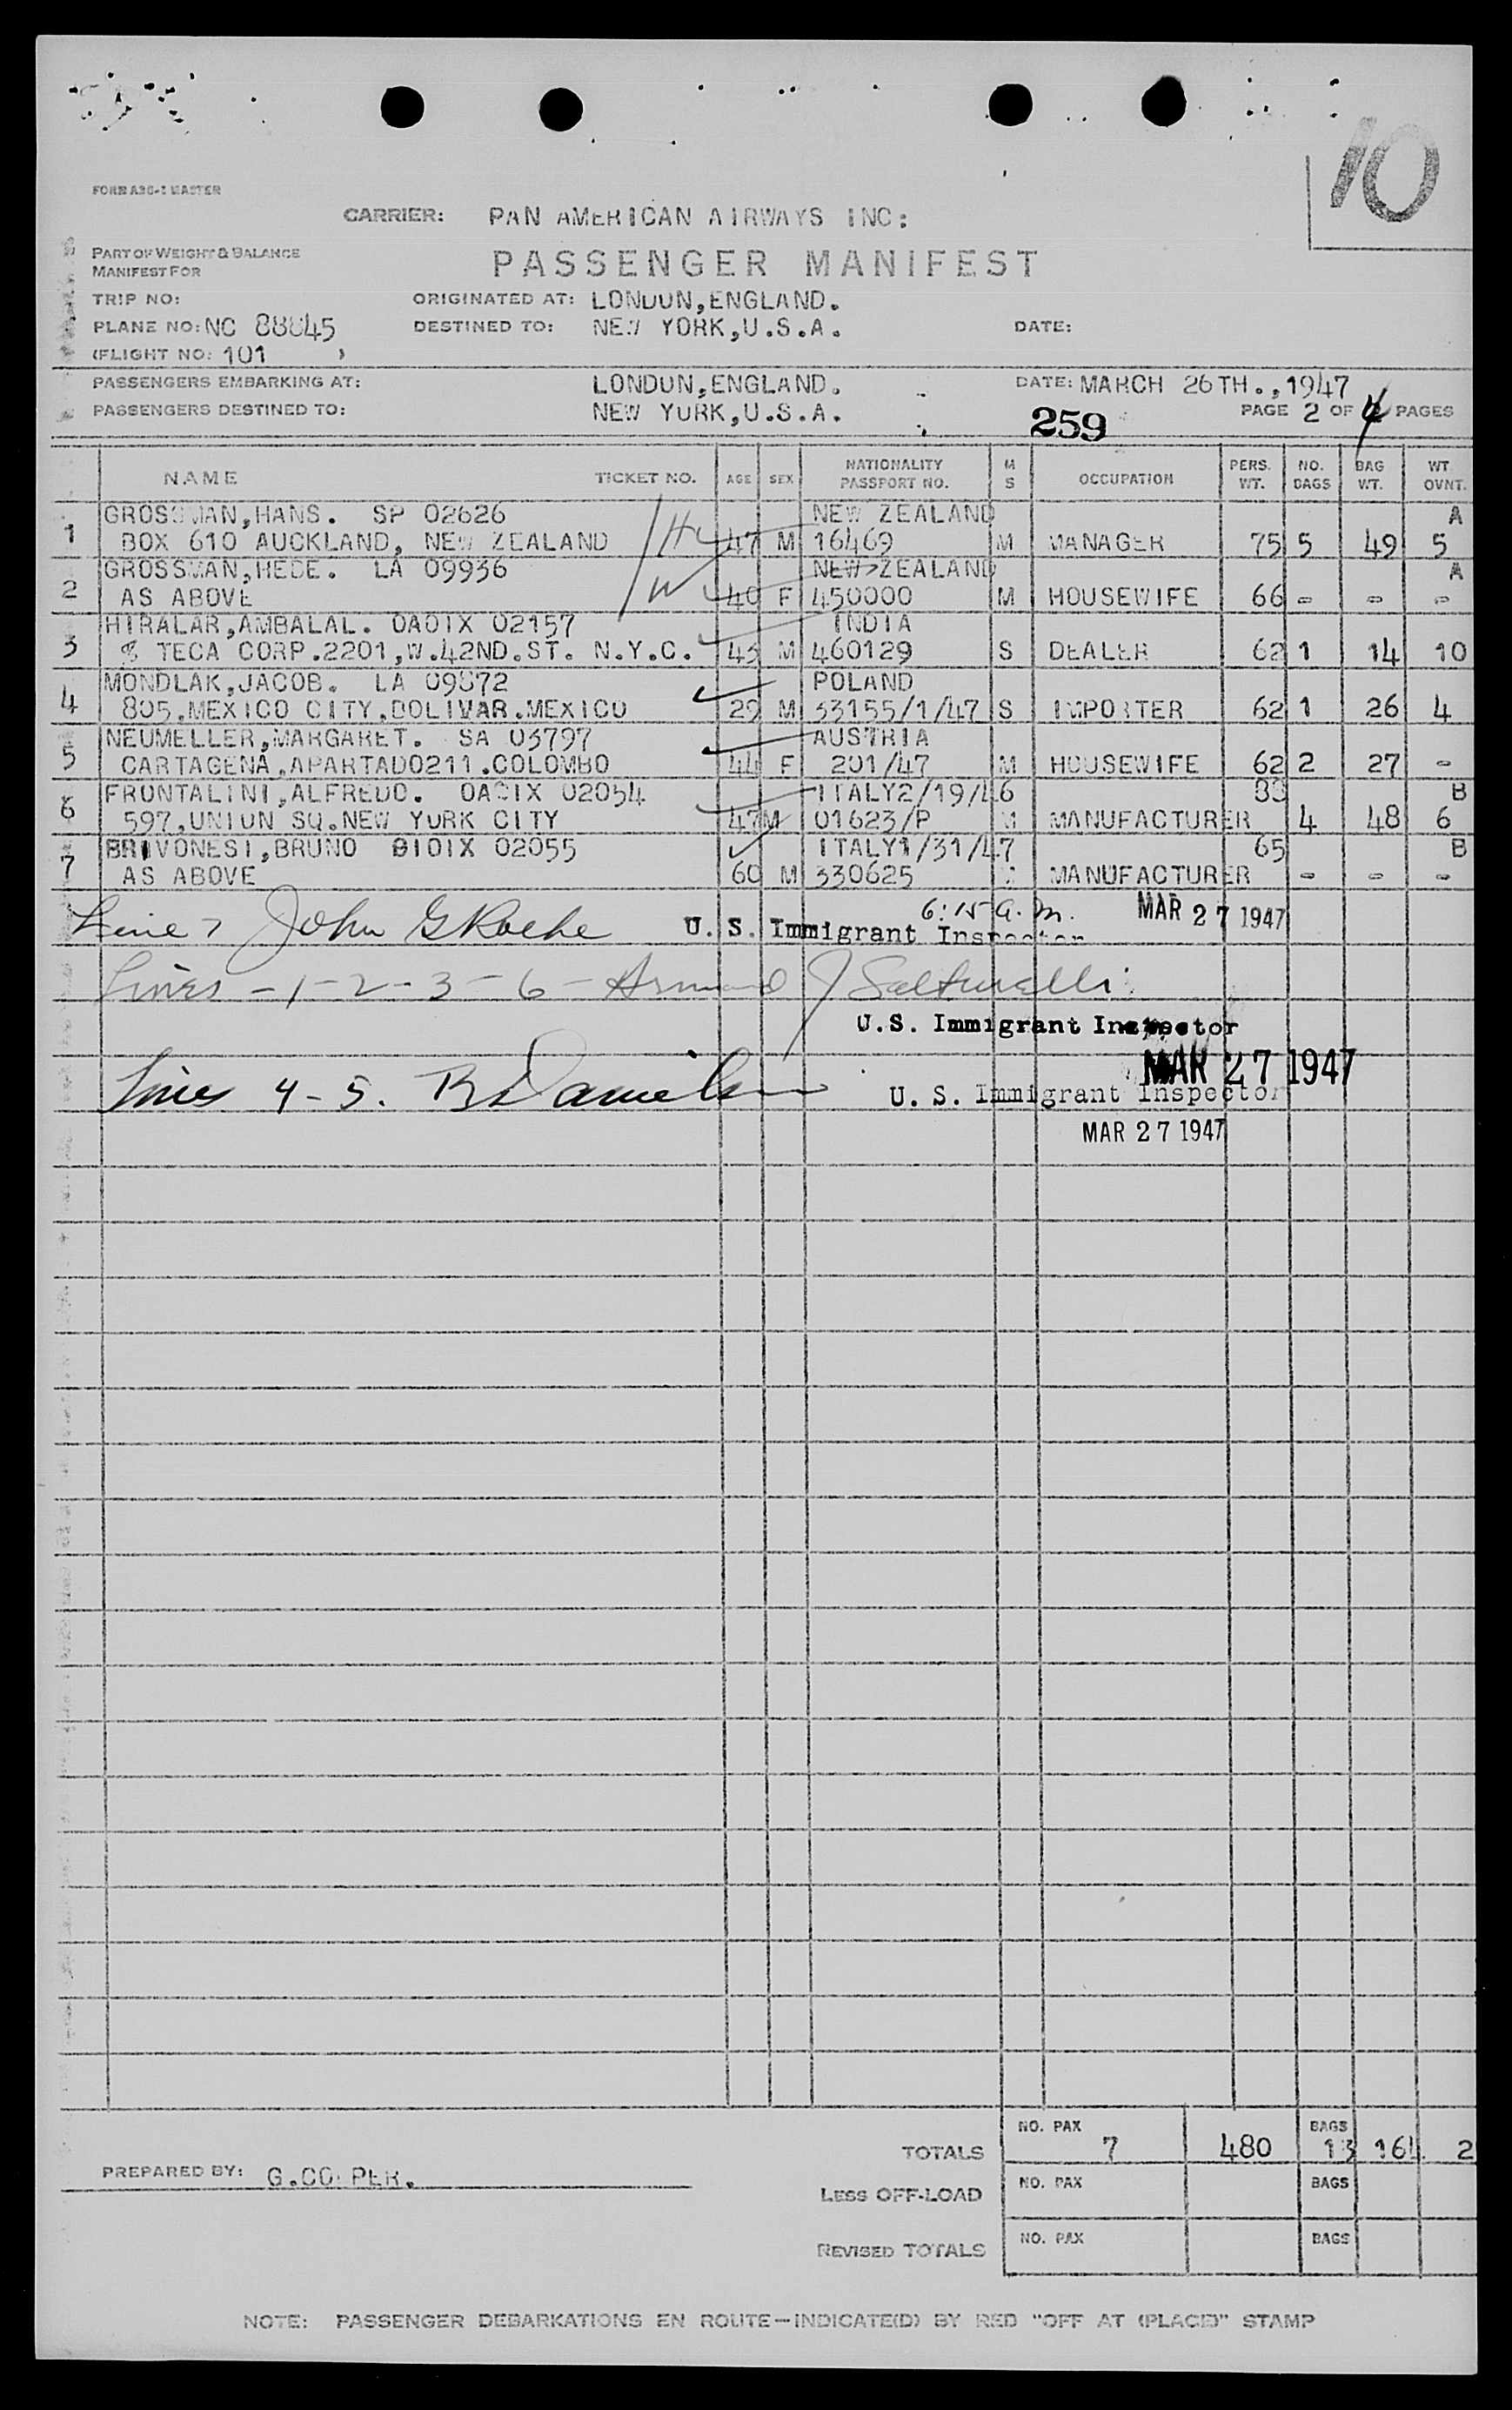 10
FORM ABC-1 MASTER
CARRIER: PAN AMERICAN AIRWAYS INC:
PART OF WEIGHT & BALANCE
MANIFEST FOR
PASSENGER MANIFEST
TRIP NO: ORIGINATED AT: LONDON,ENGLAND.
PLANE NO: NC 88845 DESTINED TO: NEW YORK,U.S.A. DATE:
(FLIGHT NO: 101 )
PASSENGERS EMBARKING AT: LONDON,ENGLAND. DATE: MARCH 26TH.,1947
PASSENGERS DESTINED TO: NEW YORK,U.S.A. 259 PAGE 2 OF 4 PAGES
NAME TICKET NO. AGE SEX NATIONALITY PASSPORT NO. M S OCCUPATION PERS. WT. NO. BAGS BAG WT. WT. OVNT.
GROSSMAN,HANS. SP 02626 NEW ZEALAND A
1 BOX 610 AUCKLAND, NEW ZEALAND H 47 M 16469 M MANAGER 75 5 49 5
GROSSMAN,HEDE. LA 09936 NEW ZEALAND A
2 AS ABOVE W 40 F 450000 M HOUSEWIFE 66 - - -
HIRALAR,AMBALAL. OAOIX 02157 INDIA
3 % TECA CORP.2201,W.42ND.ST. N.Y.C. 43 M 460129 S DEALER 62 1 14 10
MONDLAK,JACOB. LA 09872 POLAND
4 805,MEXICO CITY.BOLIVAR.MEXICO 29 M 33155/1/47 S IMPORTER 62 1 26 4
NEUMELLER,MARGARET. SA 03797 AUSTRIA
5 CARTAGENA,APARTADO211.COLOMBO 44 F 201/47 M HOUSEWIFE 62 2 27 -
FRONTALINI,ALFREDO. OAOIX 02054 ITALY2/19/46 83 B
6 597,UNION SQ.NEW YORK CITY 47 M 01623/P M MANUFACTURER 4 48 6
BRIVONESI,BRUNO OIOIX 02055 ITALY1/31/47 65 B
7 AS ABOVE 60 M 330625 MANUFACTURER - - -
Line 7 John G Roche U. S. Immigrant Inspector 6:15 a.m. MAR 27 1947
Lines - 1 - 2 - 3 - 6 - Armand J
U.S. Immigrant Inspector
MAR 27 1947
Lines 4 - 5. U. S. Immigrant Inspector
MAR 27 1947
TOTALS NO. PAX 7 480 BAGS 13 164 2
PREPARED BY: G.COOPER.
LESS OFF-LOAD NO. PAX BAGS
REVISED TOTALS NO. PAX BAGS
NOTE: PASSENGER DEBARKATIONS EN ROUTE—INDICATE(D) BY RED "OFF AT (PLACE)" STAMP